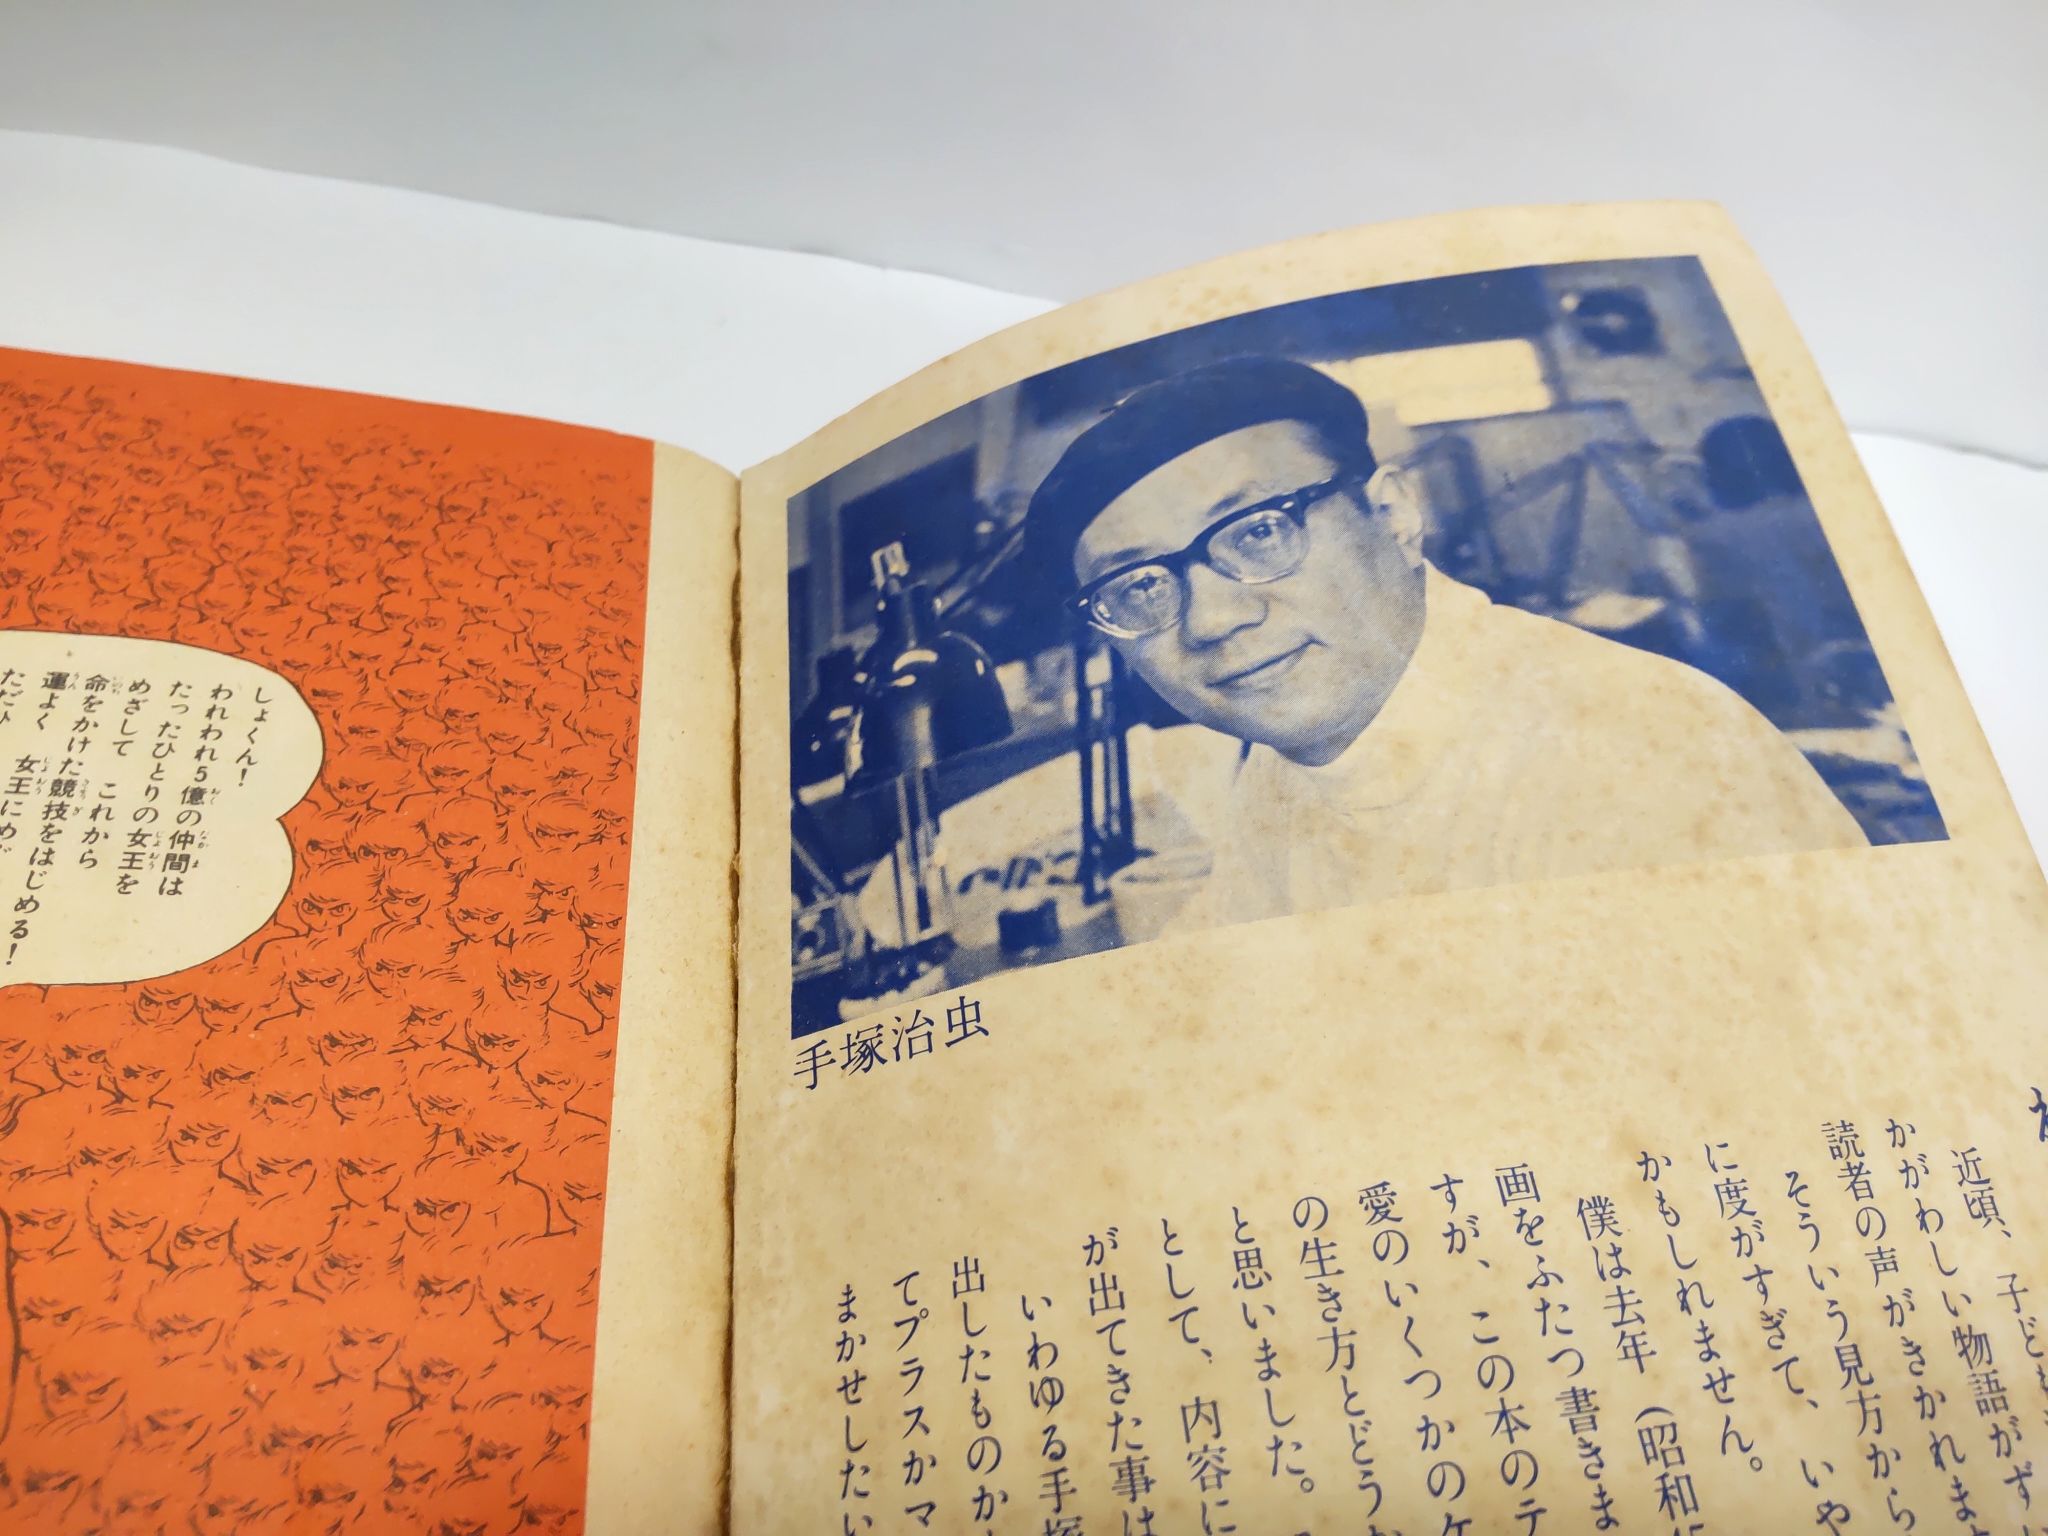 しょくん！
われわれ5億の仲間は
たったひとりの女王を
めざして これから
命をかけた競技をはじめる！
運よく 女王にめ
ただ
手塚治虫
近頃、子ども
かがわしい物語がず
読者の声がきかれま
そういう見方から
に度がすぎて、いや
かもしれません。
僕は去年(昭和
画をふたつ書きま
すが、この本のテ
愛のいくつかのケ
の生き方とどう
と思いました。
として、内容に
が出てきた事は
いわゆる手塚
出したものか
てプラスかマ
まかせしたい